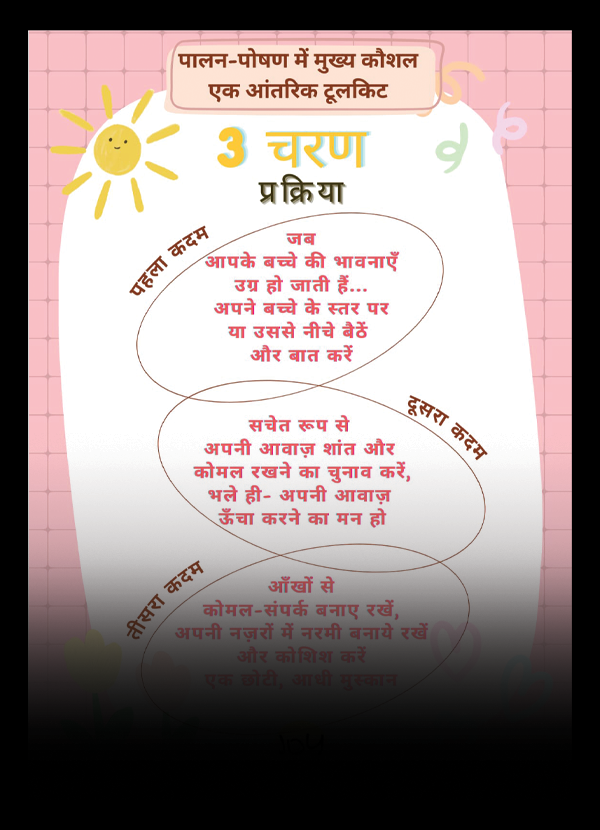 पालन-पोषण में मुख्य कौशल
एक आंतरिक टूलकिट
3 चरण
प्रक्रिया
पहला कदम
जब
आपके बच्चे की भावनाएँ
उग्र हो जाती हैं...
अपने बच्चे के स्तर पर
या उससे नीचे बैठें
और बात करें
दूसरा कदम
सचेत रूप से
अपनी आवाज़ शांत और
कोमल रखने का चुनाव करें,
भले ही- अपनी आवाज़
ऊँचा करने का मन हो
तीसरा कदम
आँखों से
कोमल-संपर्क बनाए रखें,
अपनी नज़रों में नरमी बनाये रखें
और कोशिश करें
एक छोटी, आधी मुस्कान